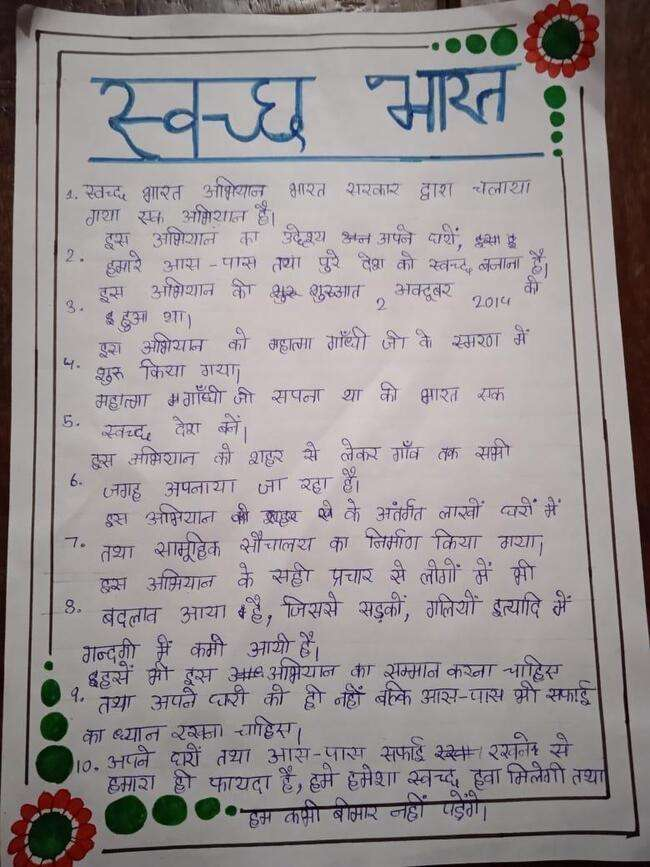 स्वच्छ भारत
1. स्वच्छ भारत अभियान भारत सरकार द्वारा चलाया
गया एक अभियान है।
इस अभियान का उद्देश्य अपने घरों,
2. हमारे आस-पास तथा पुरे देश को स्वच्छ बनाना है।
इस अभियान की शुरुआत 2 अक्टूबर 2014 की
3. हुआ था।
इस अभियान को महात्मा गाँधी जी के स्मरण में
4. शुरू किया गया।
महात्मा गाँधी जी सपना था की भारत एक
5. स्वच्छ देश बनें।
इस अभियान को शहर से लेकर गाँव तक सभी
6. जगह अपनाया जा रहा है।
इस अभियान के अंतर्गत लाखों घरों में
7. तथा सामूहिक सौचालय का निर्माण किया गया।
इस अभियान के सही प्रचार से लोगों में भी
8. बदलाव आया है, जिससे सड़कों, गलियों इत्यादि में
गन्दगी में कमी आयी है।
हमें भी इस अभियान का सम्मान करना चाहिए
9. तथा अपने घरों की ही नहीं बल्कि आस-पास भी सफाई
का ध्यान रखना चाहिए।
10. अपने घरों तथा आस-पास सफाई रखने से
हमारा ही फायदा है, हमे हमेशा स्वच्छ हवा मिलेगी तथा
हम कभी बीमार नहीं पड़ेंगे।